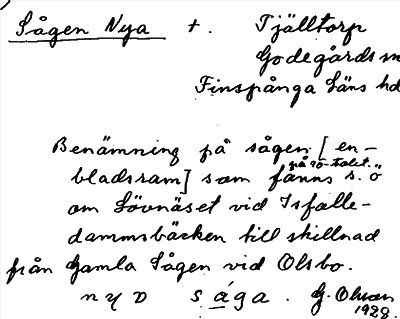 Sågen Nya +. Tjälltorp
Godegårds sn
Finspånga Läns hd
Benämning på sågen [en-
på 70-talet.
bladsram] som fanns s. ö
om Lövnäset vid Isfalle-
dammsbäcken till skillnad
från Gamla Sågen vid Olsbo.
nyɒ såga. G. Olson
1928.